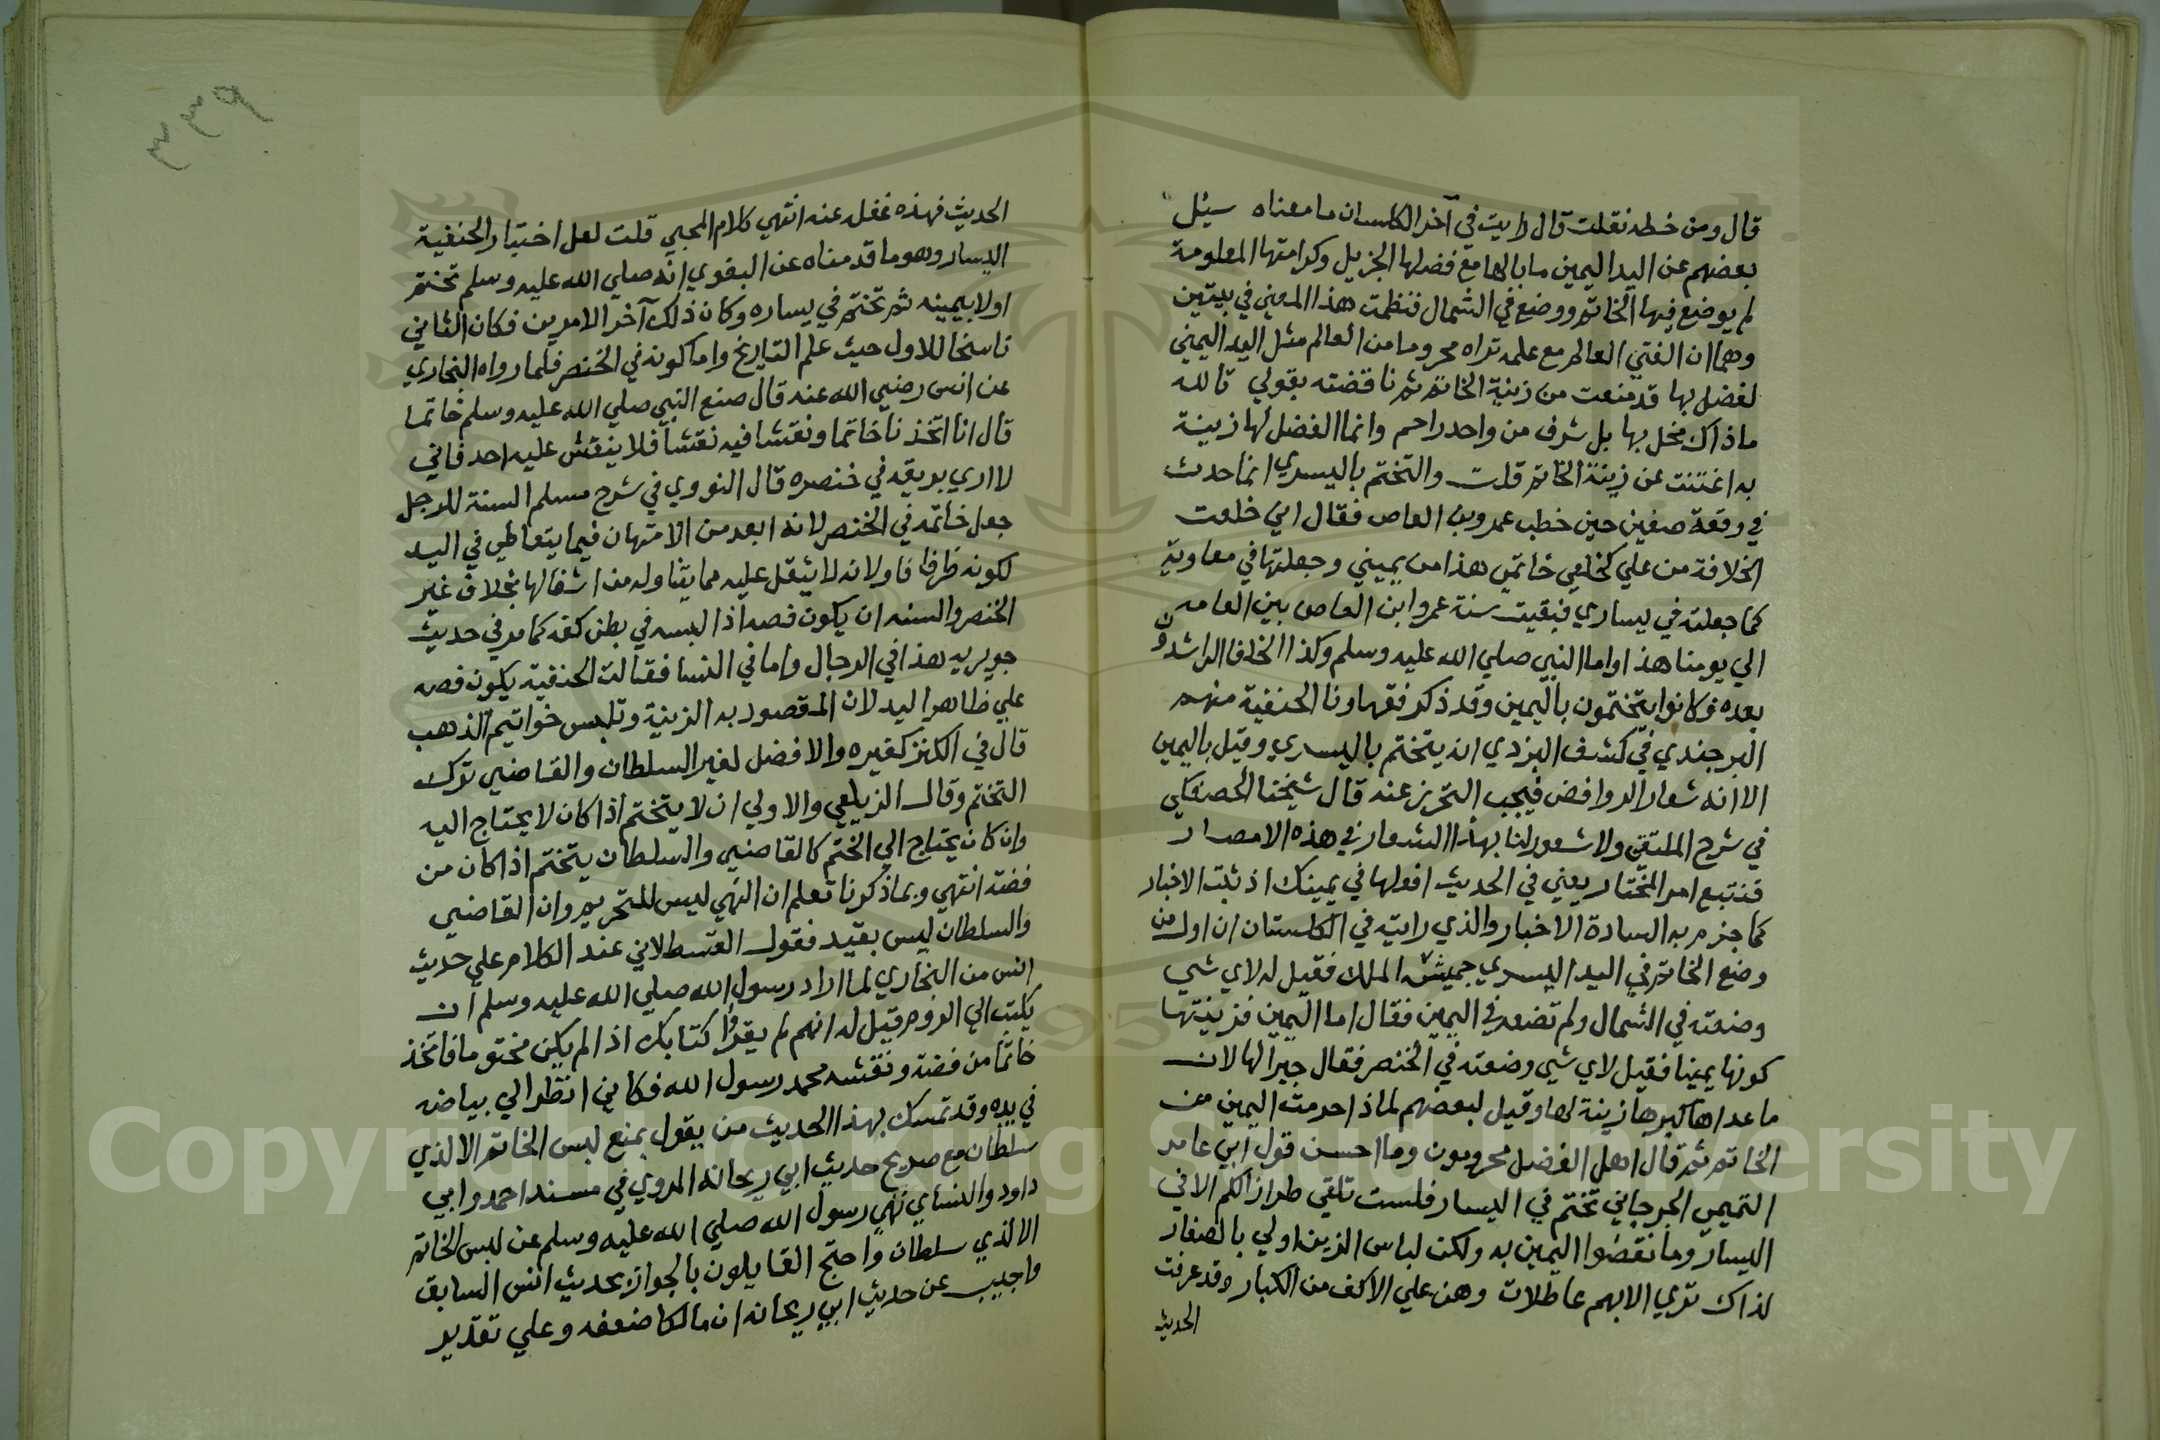 قال ومن خطه نقلت قال رايت في آخر الكلستان ما معناه سيئل
بعضهم عن اليد اليمين ما بالها مع فضلها الجزيل وكرامتها المعلومة
لم يوضع فيها الخاتم ووضع في الشمال فنظمت هذا المعني في بيتين
وهما ان الفتي العالم مع علمه تراه محروما من العالم مثل اليد اليمني
لفضل بها قد منعت من زينة الخاتم ثم ناقضته بقولي تالله
ماذاك مخل بها بل شرف من واحد راحم وانما الفضل لها زينة
به اغتنت عن زينة الخاتم قلت والتختم باليسري انما حدث
في وقعة صفين حين خطب عمرو بن العاص فقال اني خلعت
الخلافة من علي كخلعي خاتمي هذا من يميني وجعلتها في معاوية
كما جعلته في يساري فبقيت سنة عمرو ابن العاص بين العامه
الي يومنا هذا واما النبي صلي الله عليه وسلم وكذا الخلفا الراشدون
بعده فكانوا يتختمون باليمين وقد ذكر فقهاونا الحنفية منهم
البرجندي في كشف البزدي انه يتختم باليسري وقيل باليمين
الا انه شعار الروافض فيجب التحرز عنه قال شيخنا الحصفكي
في شرح الملتقي ولا شعور لنا بهذا الشعار في هذه الامصار
فنتبع امر المختار يعني في الحديث افولها في يمينك اذ ثبت الاخبار
كما جزم به السادة الاخيار والذي رايته في الكلستان ان اول من
وضع الخاتم في اليد اليسري جميشد الملك فقيل له لاي شي
وضعته في الشمال ولم تضعه في اليمين فقال اما اليمين فزينتها
كونها يمينا فقيل لاي شي وضعته في الخنصر فقال جبرا لها لان
ما عداها كبرها زينة لها وقيل لبعضهم لماذا حرمت اليمين من
الخاتم ثم قال اهل الفضل محرومون وما احسن قول ابي عامر
التميمي الجرجاني تختم في اليسار فلست تلقي طراز الكم الا في
اليسار وما نقضوا اليمين به ولكن لباس الزين اولي بالصغار
لذاك تري الابهم عاطلات وهن علي الاكف من الكبار وقد عرفت
الحديث
الحديث فهذه غفله عنه انتهي كلام المحبي قلت لعل اختيار الحنفية
اليسار وهو ما قدمناه عن البغوي انه صلي الله عليه وسلم تختم
اولا بيمينه ثم تختم في يساره وكان ذلك آخر الامرين فكان الثاني
ناسخا للاول حيث علم التاريخ واما كونه في الخنصر فلما رواه البخاري
عن انس رضي الله عنه قال صنع النبي صلي الله عليه وسلم خاتما
قال انا اتخذنا خاتما ونقشنا فيه نقشا فلا ينقش عليه احد فاني
لااري بريقه في خنصره قال النووي في شرح مسلم السنة للرجل
جعل خاتمه في الخنصر لانه ابعد من الامتهان فيما يتعاطي في اليد
لكونه طرفا ولانه لا يثقل عليه مما يتناوله من اشغالها بخلاف غير
الخنصر والسنه ان يكون فصه اذا لبسه في بطن كفه كما مر في حديث
جويريه هذا في الرجال واما في النسا فقالت الحنفية يكون فصه
علي ظاهر اليد لان المقصود به الزينة وتلبس خواتيم الذهب
قال في الكنز كغيره والافضل لغير السلطان والقاضي ترك
التختم وقال الزيلعي والاولي ان لا يتختم اذا كان لا يحتاج اليه
وان كان يحتاج الي الختم كالقاضي والسلطان يتختم اذا كان من
فضة انتهي وبما ذكرنا تعلم ان النهي ليس للتحريم وان القاضي
والسلطان ليس بقيد فقول القسطلاني عند الكلام علي حديث
انس من البخاري لما اراد رسول الله صلي الله عليه وسلم ان
يكتب الي الروم قيل له انهم لم يقرؤا كتابك اذا لم يكن مختوما فاتخذ
خاتما من فضة ونقشه محمد رسول الله فكاني انظر الي بياضه
في يده وقد تمسك بهذا الحديث من يقول بمنع لبس الخاتم الا لذي
سلطان مع صريح حديث ابي ريحانه المروي في مسند احمد وابي
داود والنسأي نهي رسول الله صلي الله عليه وسلم عن لبس الخاتم
الا لذي سلطان واحتج القايلون بالجواز بحديث انس السابق
واجيب عن حديث ابي ريحانه ان مالكا ضعفه وعلي تقدير
Copyright © King Saud University